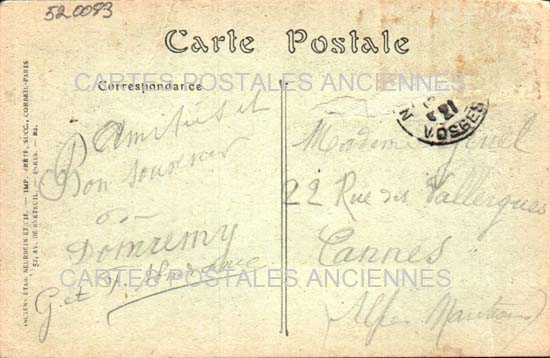 520083
Carte Postale
CARTES POSTALES ANCIENNES
Correspondance
Amitiés et
Bon souvenir
de
Domremy
G et
Madame
22 Rue des Vallergues
Cannes
CARTES POSTALES ANCIENNES
(Alpes Maritimes)
VOSGES
ANCIENS ÉTAB. NEURDEIN ET CIE. — IMP. CRÉTÉ, SUCC., CORBEIL-PARIS
52, AV. DE BRETEUIL. — PARIS. — 82.